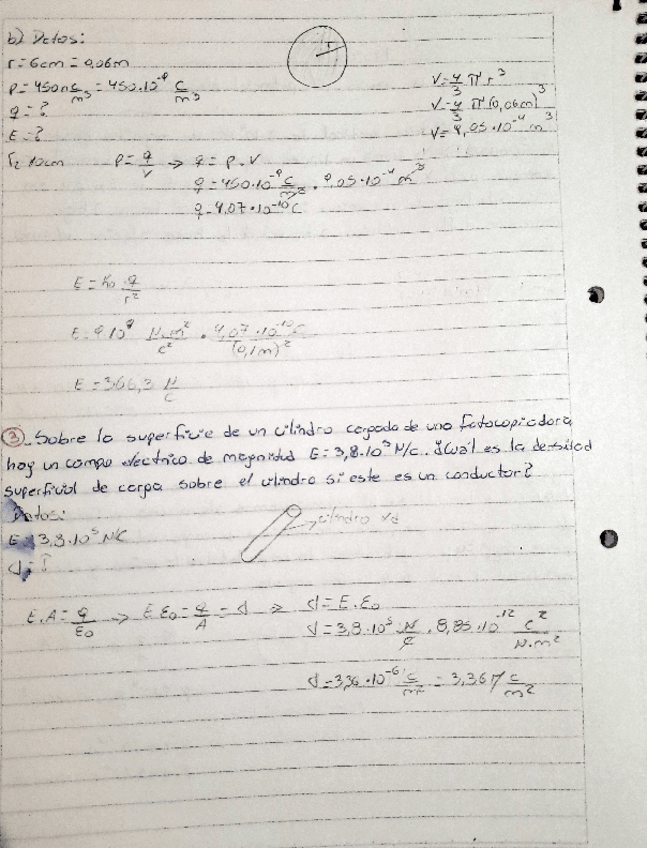 b) Datos:
r = 6cm = 0,06m
ρ = 450 nC/m³ = 450.10⁻⁹ C/m³
q = ?
E = ?
r = 10cm
V = 4/3 π r³
V = 4/3 π (0,06m)³
V = 9,05.10⁻⁴ m³
ρ = q/V → q = ρ . V
q = 450.10⁻⁹ C/m³ . 9,05.10⁻⁴ m³
q = 4,07.10⁻¹⁰ C
E = K₀ q/r²
E = 9.10⁹ N.m²/C² . 4,07.10⁻¹⁰ C/(0,1m)²
E = 366,3 N/C
③ Sobre la superficie de un cilindro cargado de una fotocopiadora,
hay un campo electrico de magnitud E = 3,8.10⁵ N/C. ¿Cuál es la densidad
superficial de carga sobre el cilindro si este es un conductor?
Datos:
E = 3,8.10⁵ N/C
σ = ?
cilindro
E.A = q/ε₀ → E.ε₀ = q/A = σ ⇒ σ = E.ε₀
σ = 3,8.10⁵ N/C . 8,85.10⁻¹² C²/N.m²
σ = 3,36.10⁻⁶ C/m² = 3,36 μ C/m²